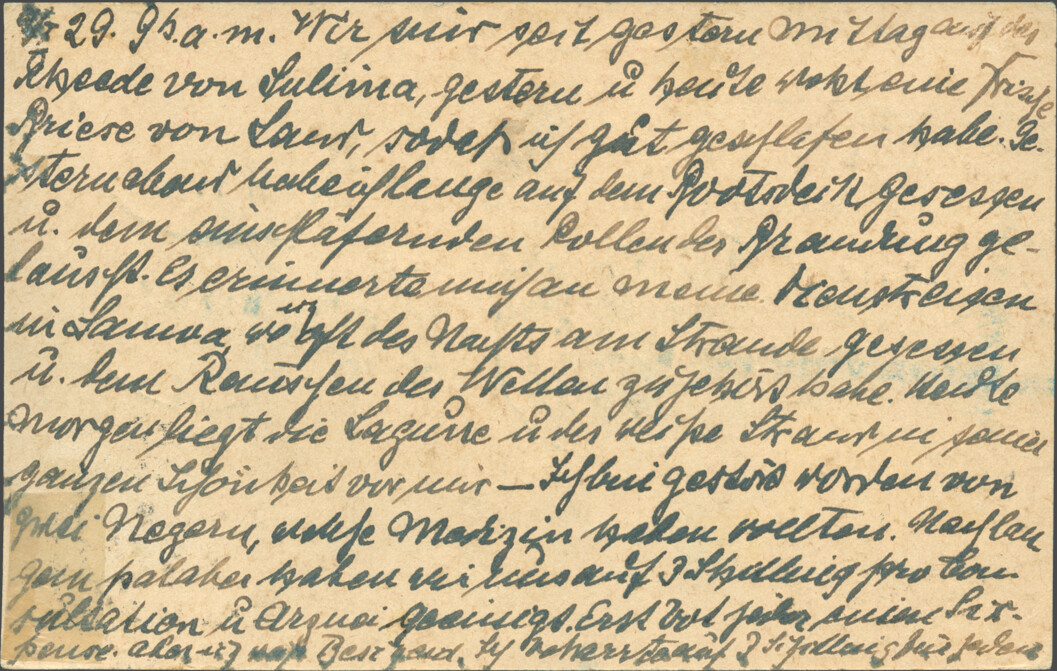 29. 9 h. a. m. Wir sind seit gestern Mittag auf der
Rheede von Sulima, gestern u heute weht eine frische
Briese von Land, sodaß ich gut geschlafen habe. Ge-
stern abend habe ich lange auf dem Bootsdeck gesessen
u. dem einschläfernden Rollen der Brandung ge-
lauscht. Es erinnerte mich an meine Dienstreisen
in Samoa, wo ich oft des Nachts am Strande gesessen
u. dem Rauschen der Wellen zugehört habe. Heute
morgen liegt die Lagune u der weiße Strand in seiner
ganzen Schönheit vor mir — Ich bin gestört worden von
zwei Negern, welche Medizin haben wollten. Nach lan
gem palaber haben wir uns auf 3 Schilling pro Con-
sultation u Arznei geeinigt. Erst bot jeder einen Six-
pence. aber ich Ich beharrte auf 3 Schilling für jeden